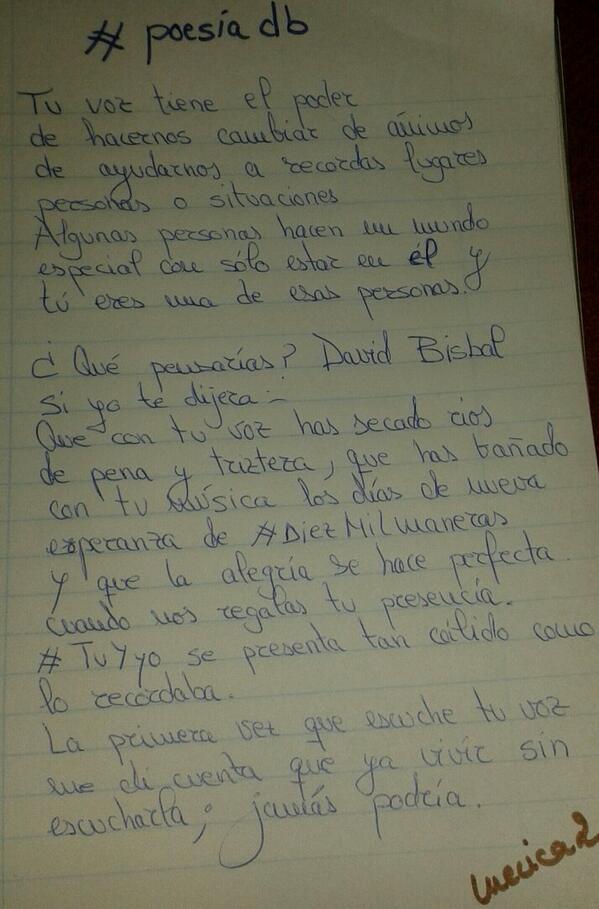 # poesía db
Tu voz tiene el poder
de hacernos cambiar de ánimos
de ayudarnos a recordas lugares
personas o situaciones
Algunas personas hacen un mundo
especial con sólo estar en él y
tú eres una de esas personas.
¿Qué pensarías? David Bisbal
Si yo te dijera:-
Que con tu voz has secado ríos
de pena y trizteza, que has bañado
con tu música los días de nueva
esperanza de #DiezMilmaneras
y que la alegría se hace perfecta
cuando nos regalas tu presencia.
# TuYyo se presenta tan cálido como
lo recordaba.
La primera vez que escuche tu voz
me di cuenta que ya vivir sin
escucharla; jamás podría.